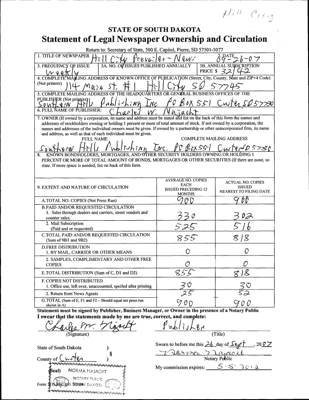 Hill City
STATE OF SOUTH DAKOTA
Statement of Legal Newspaper Ownership and Circulation
Return to: Secretary of State, 500 E. Capitol, Pierre, SD 57501-5077
1. TITLE OF NEWSPAPER Hill City Prevailer-News
DATE 09-26-07
3. FREQUENCY OF ISSUE weekly
3A. NO. OF ISSUES PUBLISHED ANNUALLY
3B. ANNUAL SUBSCRIPTION PRICE $ 32/42
4. COMPLETE MAILING ADDRESS OF KNOWN OFFICE OF PUBLICATION (Street, City, County, State and ZIP+4 Code)
(Not printers) 114 Main St. #1 Hill City SD 57745
5. COMPLETE MAILING ADDRESS OF THE HEADQUARTERS OR GENERAL BUSINESS OFFICES OF THE
PUBLISHER (Not printers)
Southern Hills Publishing Inc PO Box 551 Custer SD 57730
6. FULL NAME OF PUBLISHER:
Charles W. Najacht
7. OWNER (If owned by a corporation, its name and address must be stated and also on the back of this form the names and
addresses of stockholders owning or holding 1 percent or more of total amount of stock. If not owned by a corporation, the
names and addresses of the individual owners must be given. If owned by a partnership or other unincorporated firm, its name
and address, as well as that of each individual must be given.
FULL NAME COMPLETE MAILING ADDRESS
Southern Hills Publishing Inc. PO Box 551 Custer SD 57730
8. KNOWN BONDHOLDERS, MORTGAGEES, AND OTHER SECURITY HOLDERS OWNING OR HOLDING 1
PERCENT OR MORE OF TOTAL AMOUNT OF BONDS, MORTGAGES OR OTHER SECURITIES (If there are none, so
state. If more space is needed, list on back of this form.
9. EXTENT AND NATURE OF CIRCULATION
AVERAGE NO. COPIES EACH ISSUED PRECEDING 12 MONTHS
ACTUAL NO. COPIES ISSUED NEAREST TO FILING DATE
A. TOTAL NO. COPIES (Net Press Run) 900 900
B. PAID AND/OR REQUESTED CIRCULATION
1. Sales through dealers and carriers, street vendors and
counter sales. 330 302
2. Mail Subscription
(Paid and or requested) 525 516
C. TOTAL PAID AND/OR REQUESTED CIRCULATION
(Sum of 9B1 and 9B2) 855 818
D. FREE DISTRIBUTION
1. BY MAIL, CARRIER OR OTHER MEANS 0 0
2. SAMPLES, COMPLIMENTARY AND OTHER FREE
COPIES 0 0
E. TOTAL DISTRIBUTION (Sum of C, D1 and D2) 855 818
F. COPIES NOT DISTRIBUTED
1. Office use, left over, unaccounted, spoiled after printing 30 30
2. Return from News Agents 25 52
G. TOTAL (Sum of E, F1 and F2 - Should equal net press run
shown in A) 900 900
Statement must be signed by Publisher, Business Manager, or Owner in the presence of a Notary Public
I swear that the statements made by me are true, correct, and complete:
Publisher
(Signature) (Title)
State of South Dakota )
§
County of Custer )
Sworn to before me this 26 day of Sept, 2007
Norma Najacht
Notary Public
(Seal) NORMA NAJACHT
NOTARY PUBLIC
My commission expires: